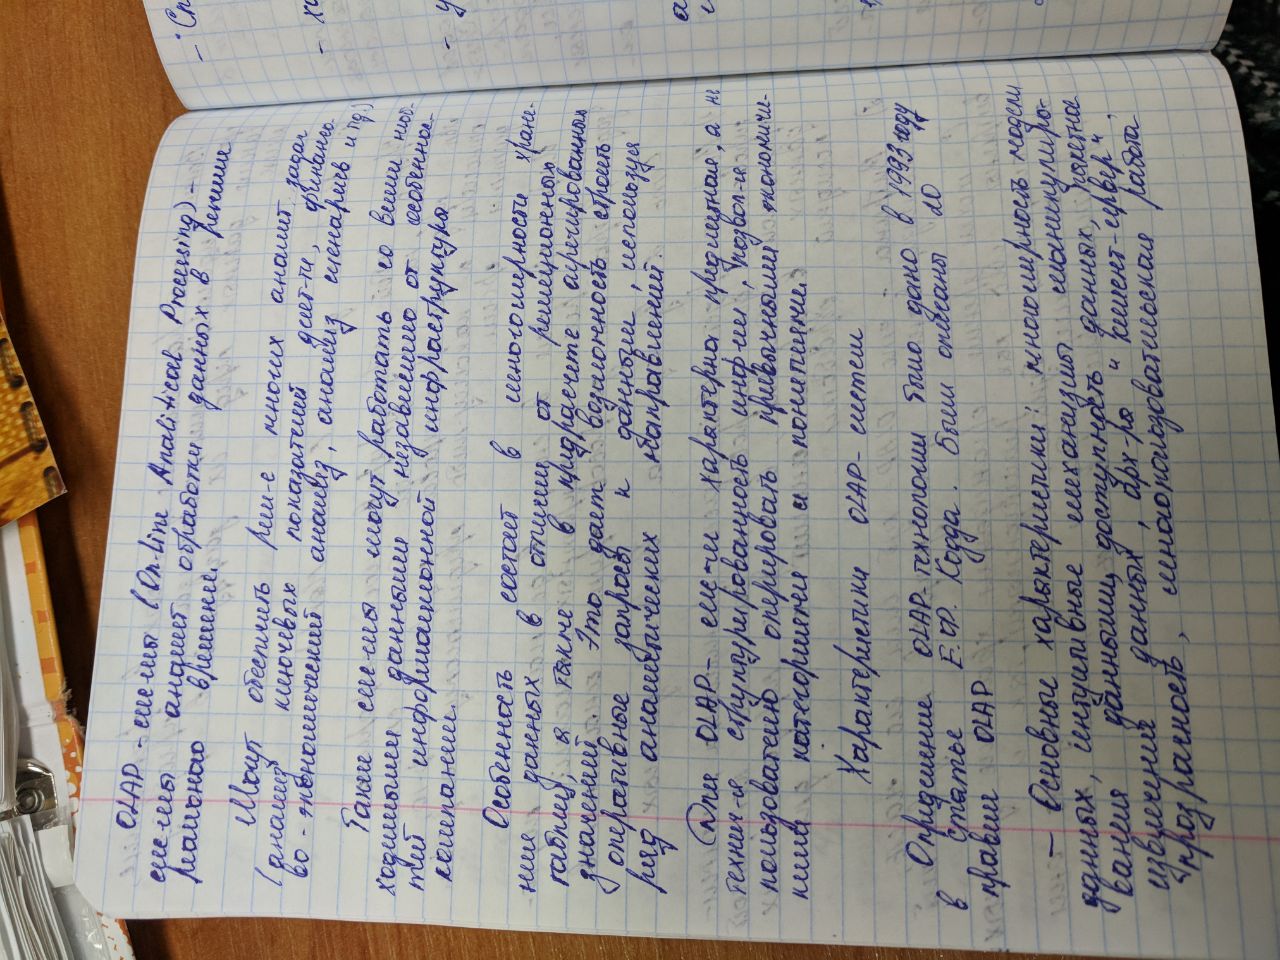 OLAP-сис-мы (On-line Analitical Processing) -
сис-мы аналит. обработки данных в режиме
реального времени.
Могут обеспечить реш-е многих аналит. задач
(анализ ключевых показателей деят-ти, финансо-
во-экономический анализ, анализ сценариев и т.д.)
Такие сис-мы могут работать со всеми необ-
ходимыми данными независимо от особеннос-
тей информационной инфраструктуры
компании.
Особенность состоит в многомерности хране-
ния данных в отличии от реляционных
таблиц, а также в предрасчете агрегированных
значений. Это дает возможность строить
оперативные запросы к данным, используя
ряд аналитических направлений.
Для OLAP-сис-м характерна предметная, а не
технич-я структурированность инф-ии, позвол-я
пользователю оперировать привычными экономиче-
скими категориями и понятиями.
Характеристики OLAP-систем
Определение OLAP-технологии было дано в 1993 году
в статье Е.Ф. Кодда. Были описаны 20
правил OLAP
- Основные характеристики: многомерность модели
данных, интуитивные механизмы манипулиро-
вания данными, доступность данных, пакетное
извлечение данных, арх-ра "клиент-сервер",
прозрачность, многопользовательская работа
- Сп
- ха
- у